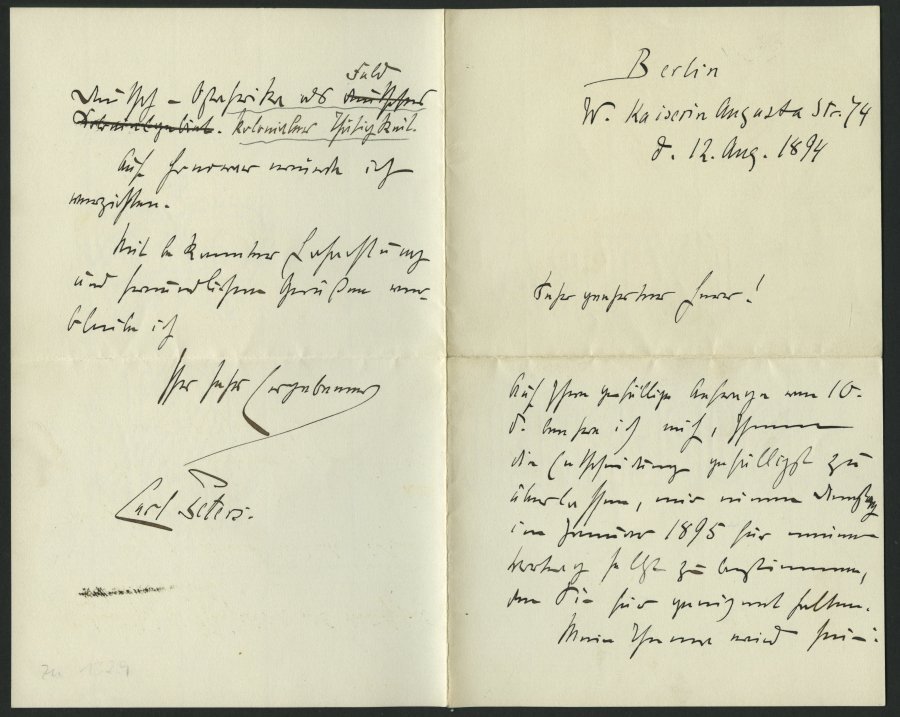 Berlin
W. Kaiserin Augusta Str. 74
d. 12. Aug. 1894
Sehr geehrter Herr!
Auf Ihre gefällige Anfrage vom 10.
d. beehre ich mich, Ihnen
die Entscheidung gefälligst zu
überlassen, mir einen Dienstag
im Januar 1895 für meinen
Vortrag selbst zu bestimmen,
den Sie für geeignet halten.
Mein Thema wird sein:
Deutsch-Ostafrika als deutsches Feld
Kolonialgebiet. kolonialer Thätigkeit.
Auf Honorar würde ich
verzichten.
Mit bekannter Hochachtung
und freundlichen Grüßen ver-
bleibe ich
Ihr sehr ergebener
Carl Peters.